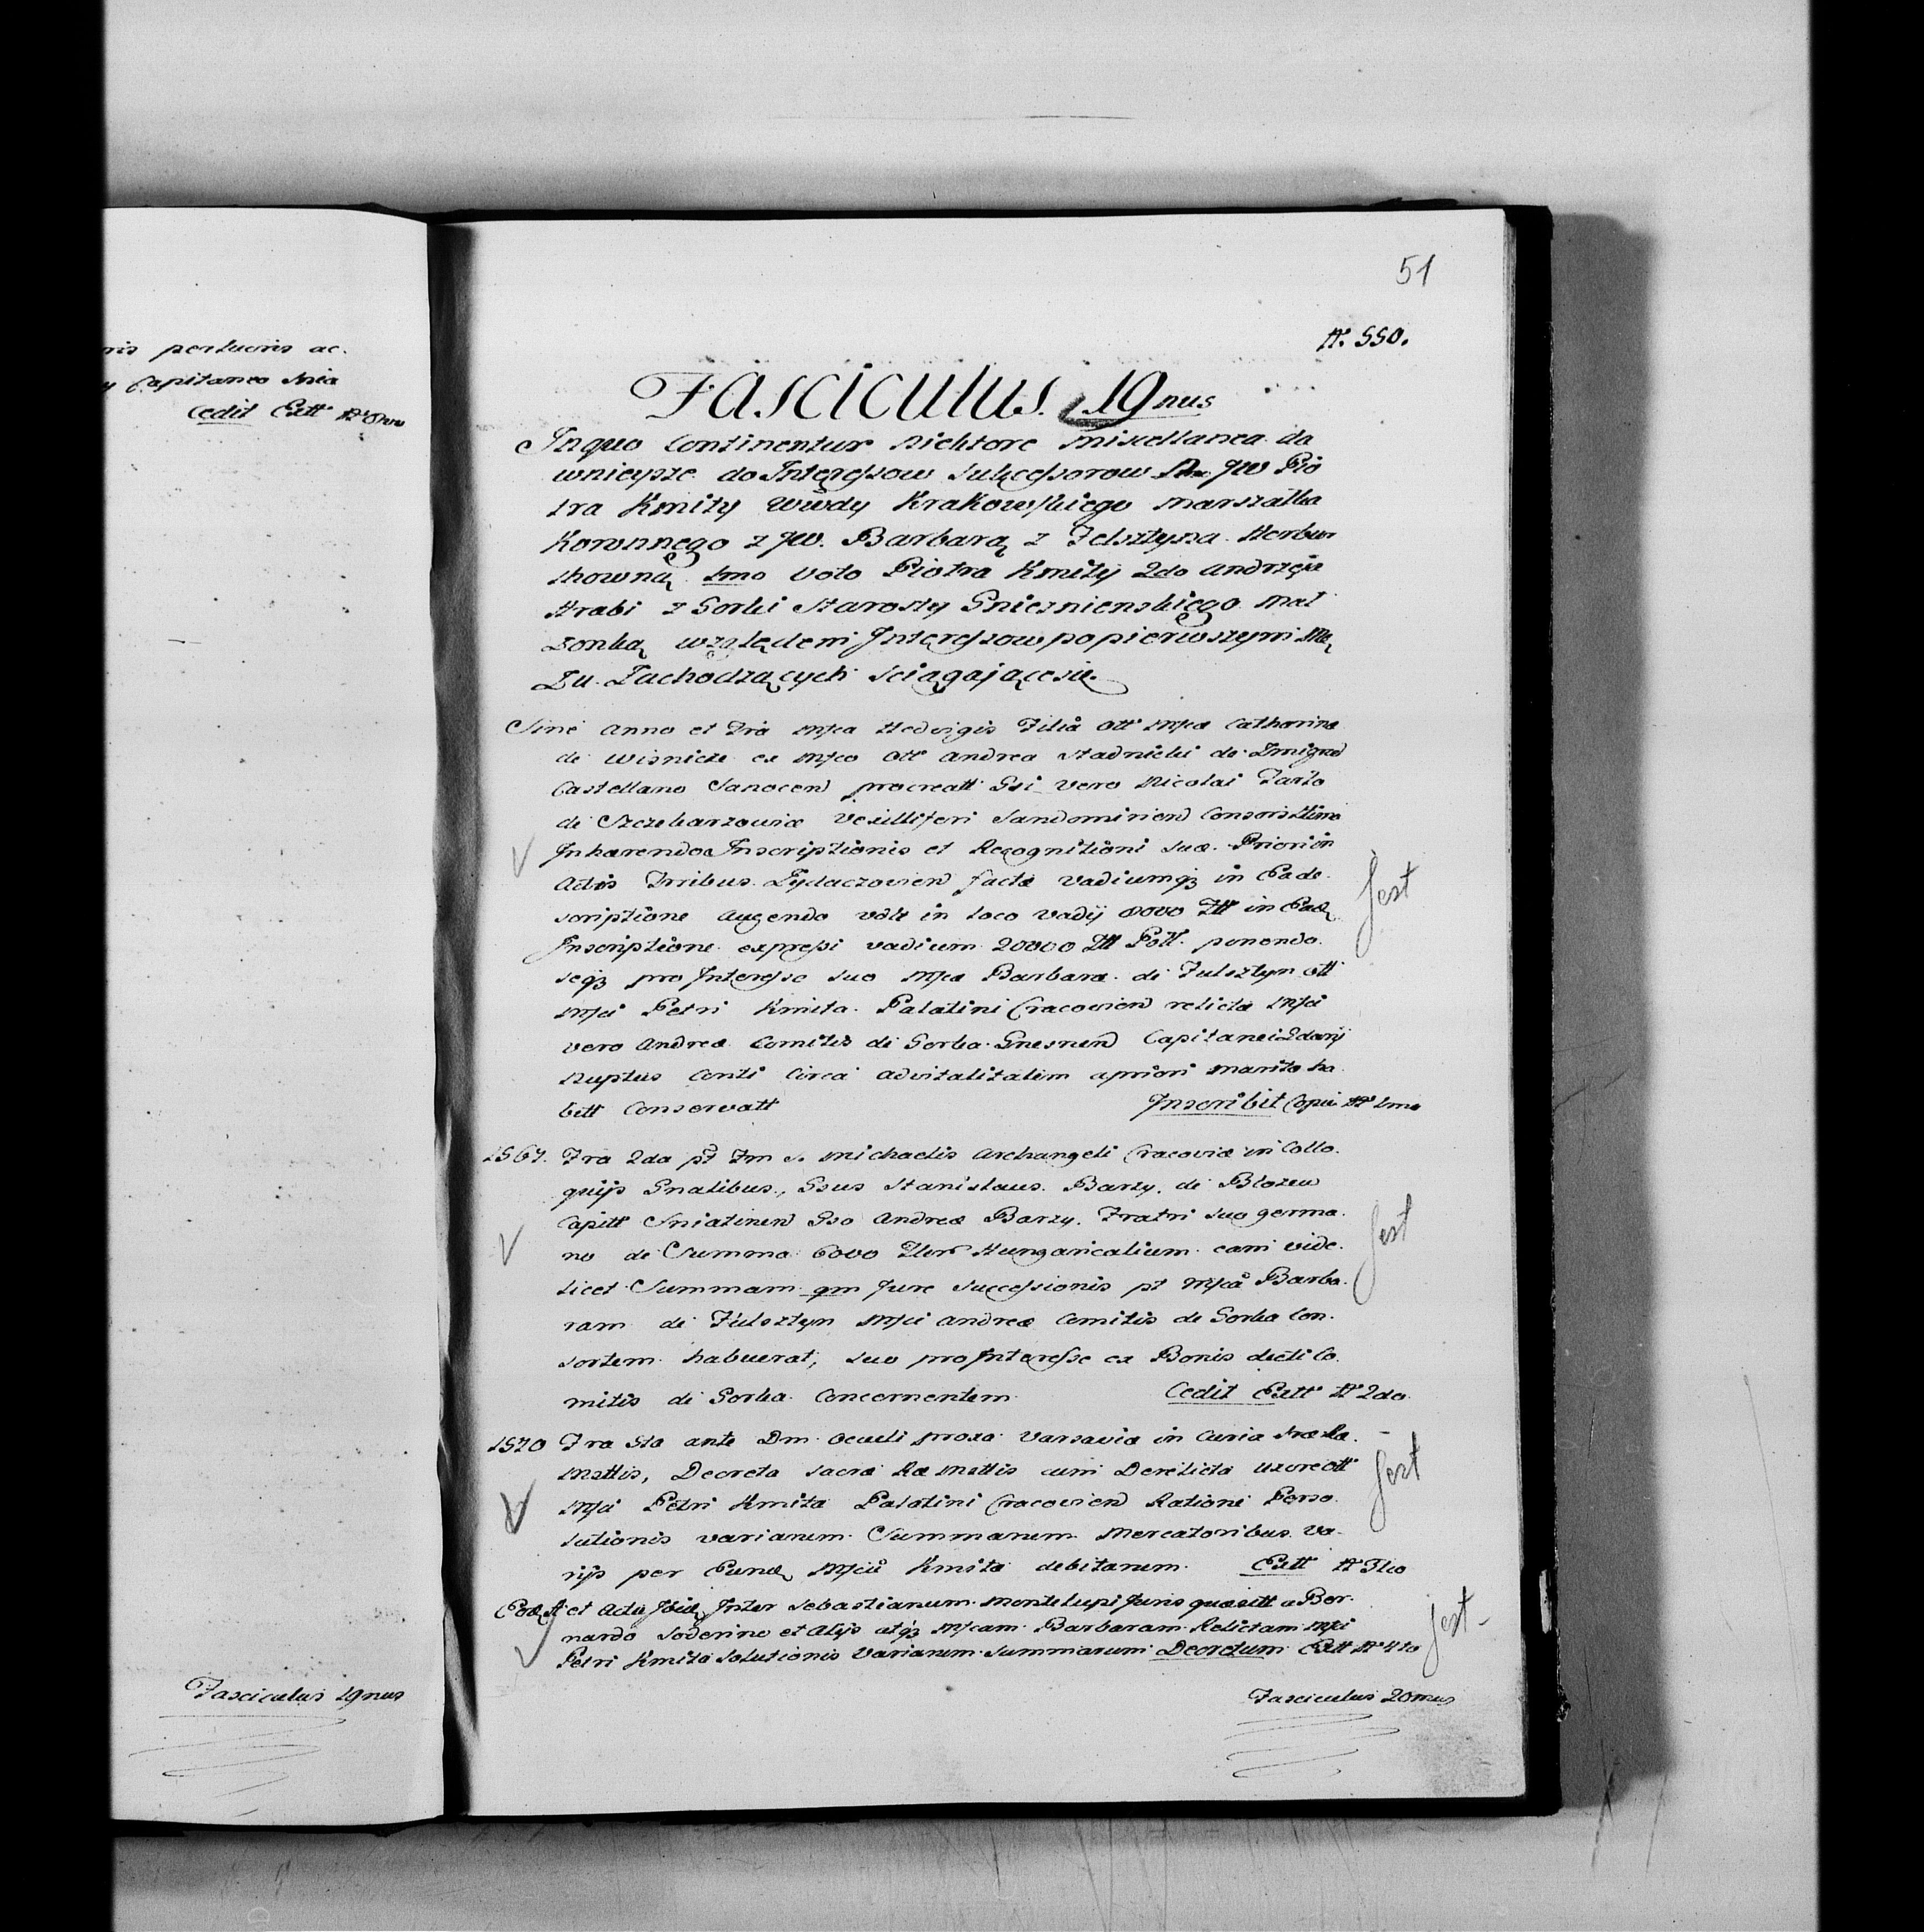 51
N. 550.
ris perlucris ac.
y Capitaneo Snia
Cedit Extt N 8vo
Fasciculus 19nus
Fasciculus. 19nus
In quo Continentur Niektore Miscellanea da
wnieysze do Interessow Sukcessorow JW Pio
tra Kmity Wwdy Krakowskiego Marszałka
Koronnego z JW. Barbarą z Felsztyna Herbur
thowną 1mo Voto Piotra Kmity 2do Andrzeja
Hrabi z Gorki Starosty Gnieznienskiego Mał
żonką względem Interessow po pierwszym Mę
żu Zachodzących sciągające się
Sine Anno et Fria Mfca Hedvigis Filia Ott Mfca Catharina
de Wisnicze ex Mfco Ott Andrea Stadnicki de Zmigrod
Castellano Sanocen procreatt Gsi Vero Nicolai Tarło
de Szczekarzowice Vexilliferi Sandomirien Consors
Inhaerendo Inscriptionis et Recognitioni suae Priori in
Actis Trribus Zydaczovien factae Vadiumq3 in Eade
scriptione augendo Vdlt in loco Vadij 8000 Ztt in Ead
Inscriptione expressi vadium 20000 Ztt Poll. ponendo
seq3 pro Interesse suo Mfca Barbara de Fulsztyn Ott
Mfci Petri Kmita Palatini Cracovien relicta Mfci
vero Andreae Comitis de Gorka Gnesnen Capitanei 2darij
Nuptus Conti Circa advitalitatem a priori marito ha
bitt Conservatt Inscribit Copia N 1mo
Jest
1567. Fra 2da pt Fm S. Michaelis Archangeli Cracoviae in Collo
quijs Gnalibus, Gsus Stanislaus Barzy de Blozew
Capitt Sniatinen Gso Andreae Barzy Fratri suo germa
no de Summa 6000 Flor Hungaricalium eam vide
licet Summam qm Jure Successionis pt Mfca Barba
ram de Fulsztyn Mfci Andreae Comitis de Gorka Con
sortem habuerat, suo pro Interesse ex Bonis dicti Co
mitis de Gorka Concernentem Cedit Extt N 2do
Jest
1570 Fra 6ta ante Dm Oculi proxa Varsaviae in Curia Srae Rae
Mattis, Decreta Sacrae Rae Mattis cum Derelicta Uxore Ott
Mfci Petri Kmita Palatini Cracovien Ratione Perso
lutionis variarum Summarum Mercatoribus Va
rijs per Eund Mfcu Kmita debitarum Extt N 3tio
Jest
Eod A et Actu Ibid Inter Sebastianum Montelupi Juris quaesitt a Ber
nardo Soderino et Alijs atq3 Mfcam Barbaram Relictam Mfci
Petri Kmita Solutionis Variarum Summarum Decretum Extt N 4to
Jest
Fasciculus 20mus